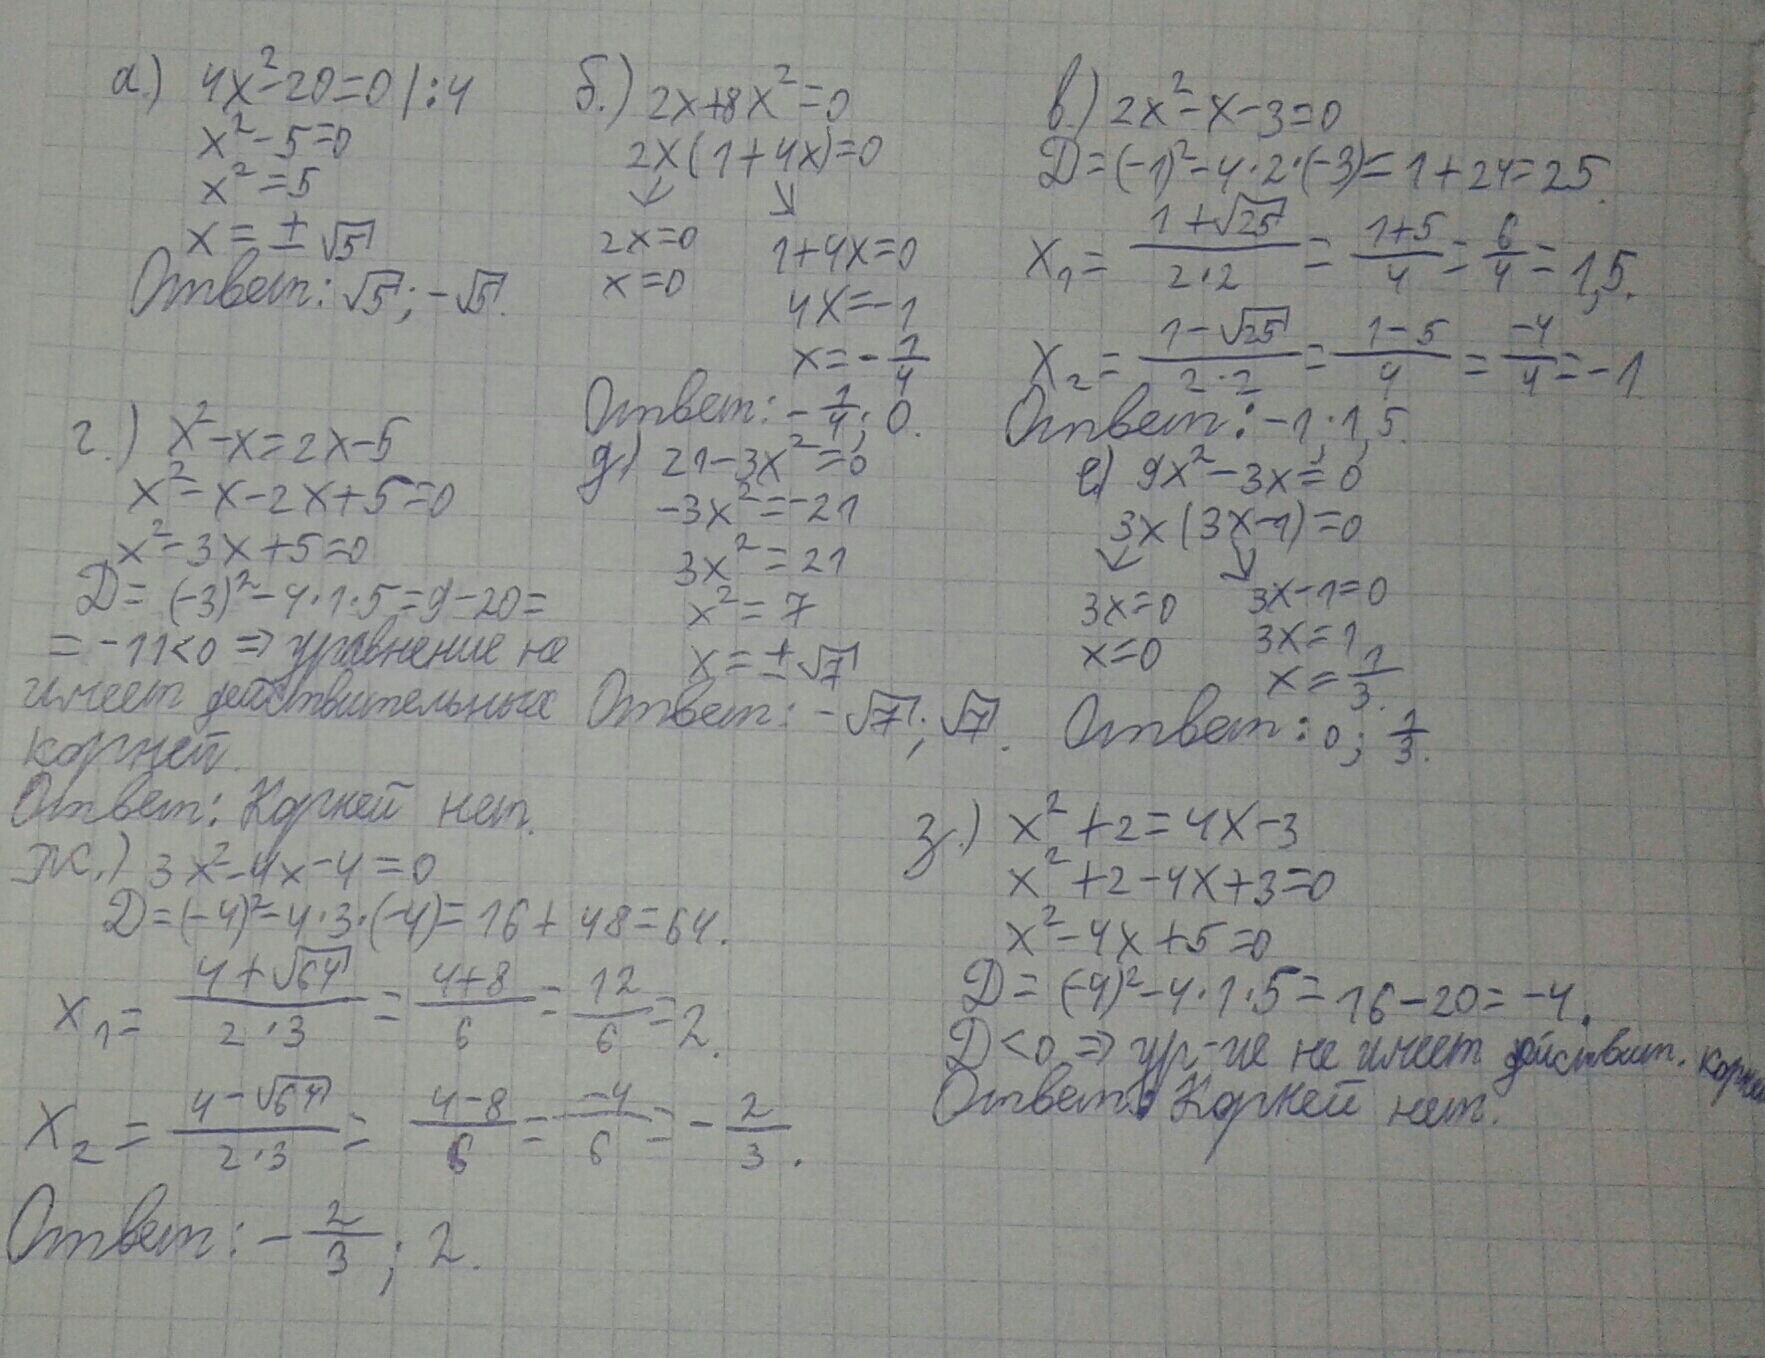 а.) 4x²-20=0 |:4
x²-5=0
x²=5
x=±√5
Ответ: √5; -√5.
б.) 2x+8x²=0
2x(1+4x)=0
↙ ↘
2x=0 1+4x=0
x=0 4x=-1
x=-1/4
Ответ: -1/4; 0.
в.) 2x²-x-3=0
D=(-1)²-4·2·(-3)=1+24=25.
x₁=(1+√25)/(2·2)=(1+5)/4=6/4=1,5.
x₂=(1-√25)/(2·2)=(1-5)/4=-4/4=-1
Ответ: -1; 1,5.
г.) x²-x=2x-5
x²-x-2x+5=0
x²-3x+5=0
D=(-3)²-4·1·5=9-20=
=-11<0 ⇒ уравнение не
имеет действительных
корней.
Ответ: Корней нет.
д.) 21-3x²=0
-3x²=-21
3x²=21
x²=7
x=±√7
Ответ: -√7; √7.
е.) 9x²-3x=0
3x(3x-1)=0
↙ ↘
3x=0 3x-1=0
x=0 3x=1
x=1/3.
Ответ: 0; 1/3.
ж.) 3x²-4x-4=0
D=(-4)²-4·3·(-4)=16+48=64.
x₁=(4+√64)/(2·3)=(4+8)/6=12/6=2.
x₂=(4-√64)/(2·3)=(4-8)/6=-4/6=-2/3.
Ответ: -2/3; 2.
з.) x²+2=4x-3
x²+2-4x+3=0
x²-4x+5=0
D=(-4)²-4·1·5=16-20=-4.
D<0 ⇒ ур-ие не имеет действит. корней
Ответ: Корней нет.